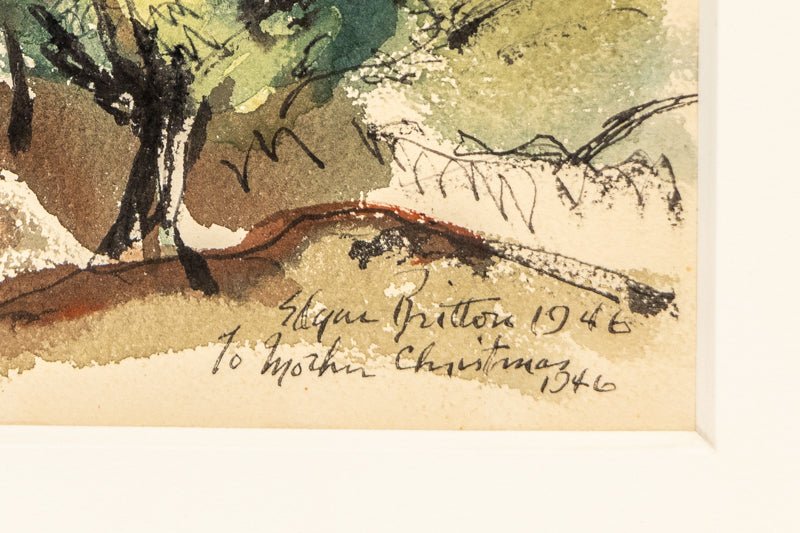 Edgar Britton 1946
To Mother Christmas
1946